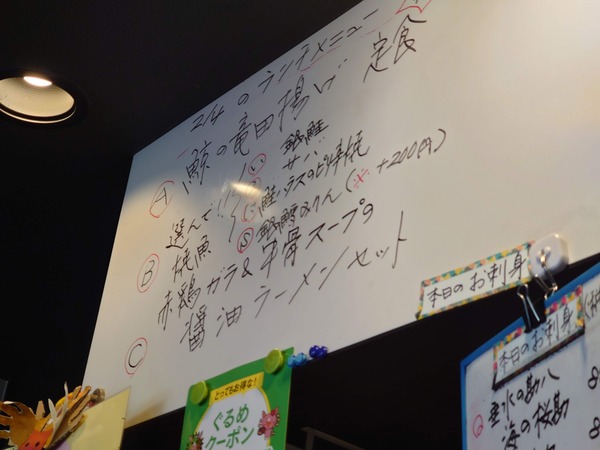 2/4 のランチメニュー
A 鯨の竜田揚げ 定食
B 選んで!!
焼魚
い 銀鮭
サバ
鮭ハラスのピリ辛焼
S 銀鱈みりん(※+200円)
C 赤鶏ガラ&牛骨スープの
醤油ラーメンセット
本日のお刺身
本日のお刺身
垂水の勘八
海の桜勘
とってもお得な!
ぐるめ
クーポン